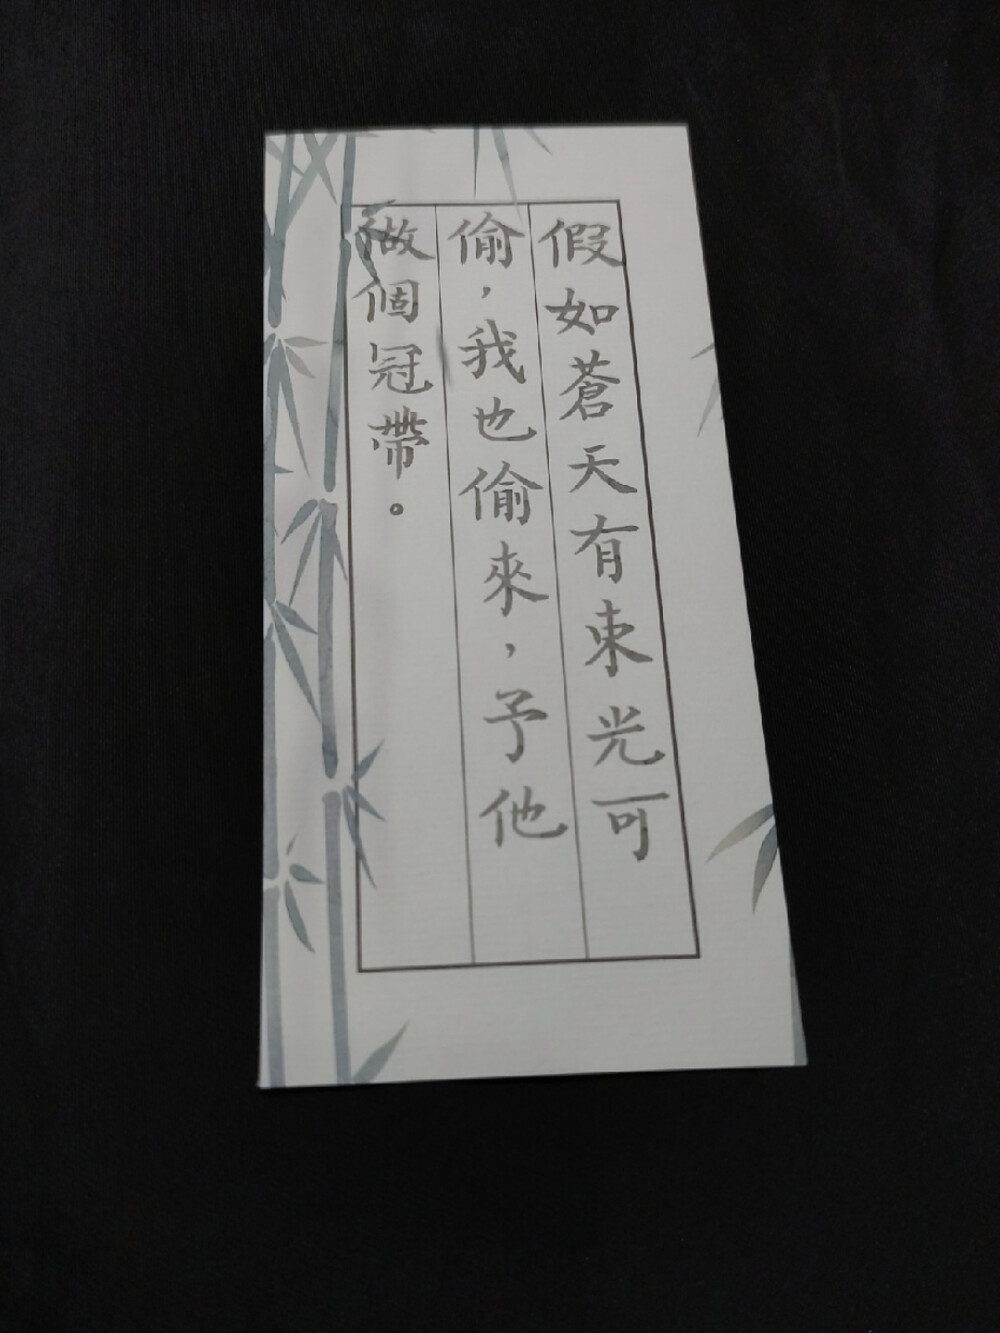 假如蒼天有束光可
偷，我也偷來，予他
做個冠帶。